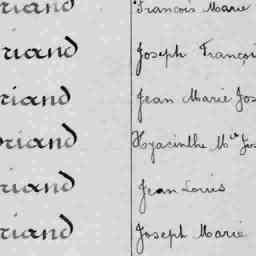 riand François Marie
riand Joseph Françoi
riand Jean Marie Jos
riand Hyacinthe Mie Jos
riand Jean Louis
riand Joseph Marie